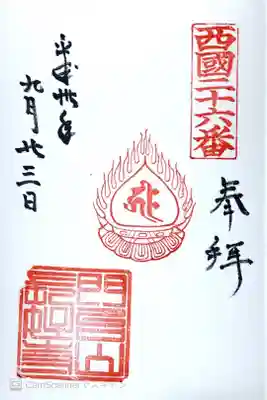 西國二十六番
奉拝
平成卅年
九月廿三日
CamScanner でスキャン